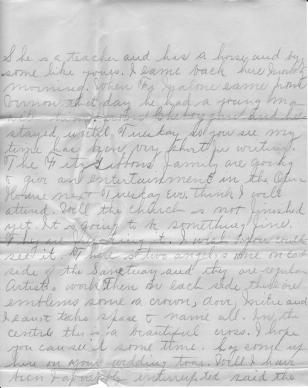 She is a teacher and has a horse and bug
some like yours. I came back here Monday
morning. When Fr Malone came from
Vernon that day he had a young man
stayed until Tuesday so you see my
time has been very short in writing.
The Fitzgibbons family are going
to give an entertainment in the Opera
House next Tuesday Eve. think I will
attend. Well the church is not finished
yet. It is going to be something fine.
I wish you could
see it. two angels one on each
side of the Sanctuary and they are regular
Artists work then on each side there are
emblems some a crown, dove, mitre and
I cant take space to name all. In the
centre there is a beautiful cross. I hope
you can see it some time. Say come up
here on your wedding tour. Well I have
been interrupted said the